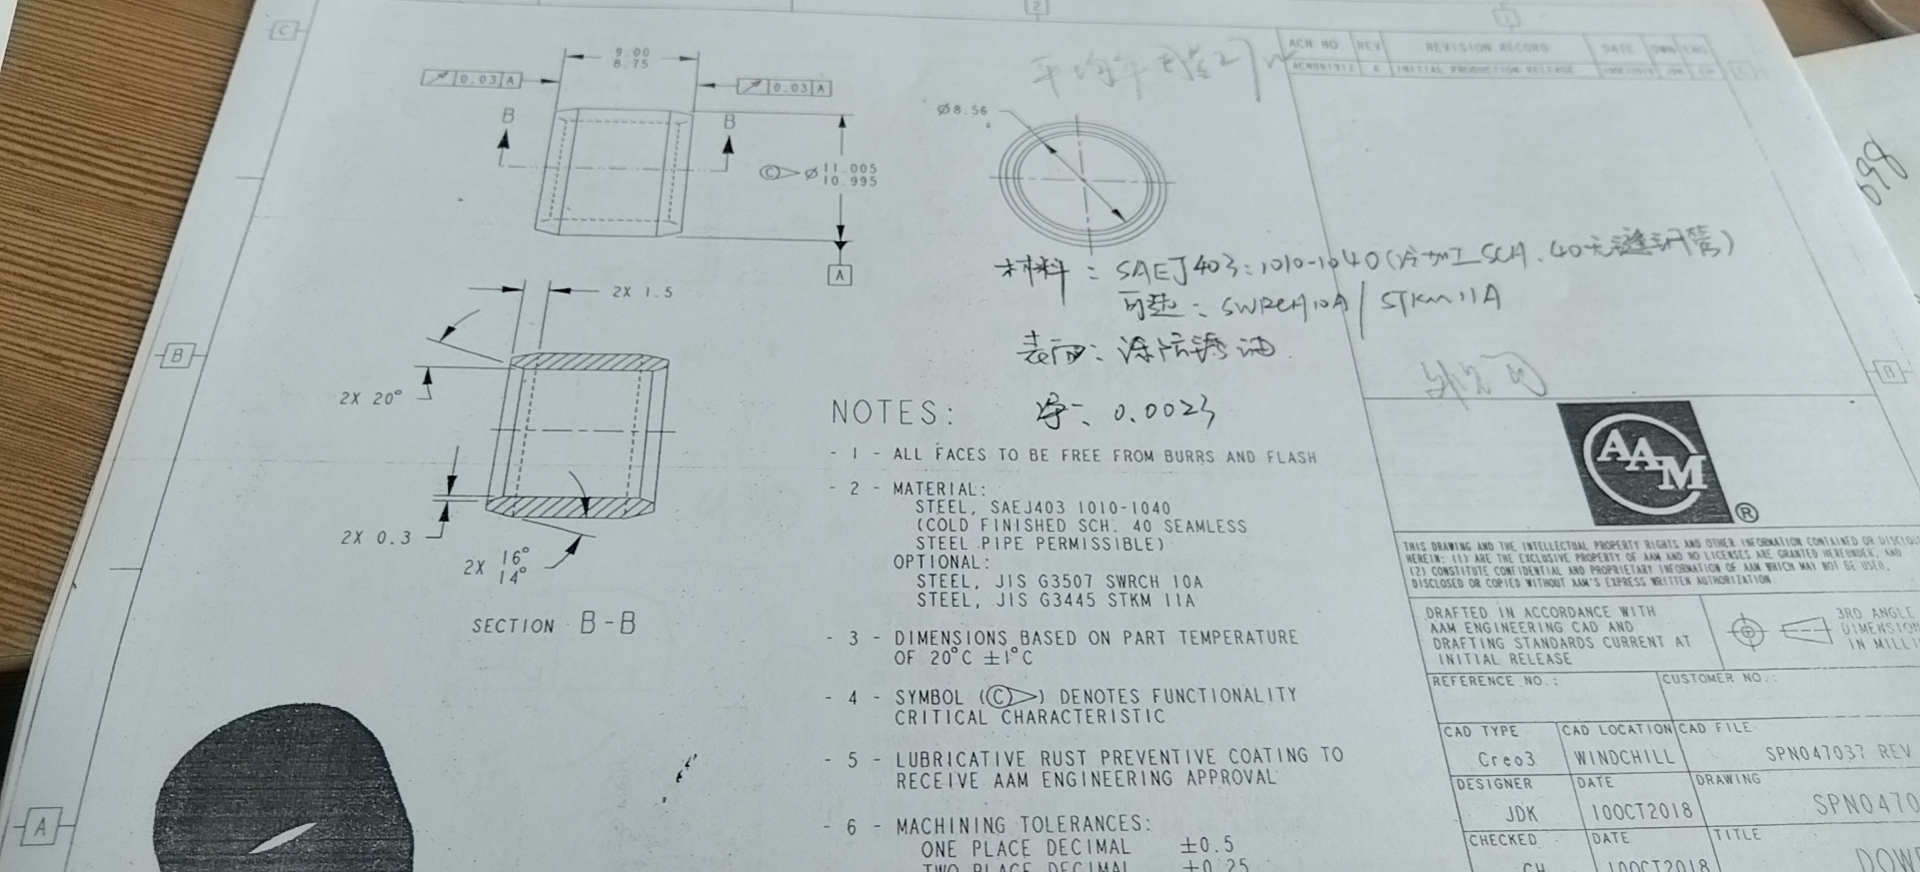 C
2
1
9.00
8.75
0.03 A
0.03 A
B
B
Ø 11.005
10.995
A
Ø8.56
ACN NO. REV REVISION RECORD DATE
A INITIAL PRODUCTION RELEASE
698
材料: SAEJ403: 1010-1040(冷加工SCH.40无缝钢管)
可选: SWRCH10A/STKM11A
表面: 涂防锈油
净: 0.0023
B
B
2X 1.5
2X 20°
2X 0.3
2X 16°
14°
SECTION B-B
NOTES:
- 1 - ALL FACES TO BE FREE FROM BURRS AND FLASH
- 2 - MATERIAL:
STEEL, SAEJ403 1010-1040
(COLD FINISHED SCH. 40 SEAMLESS
STEEL PIPE PERMISSIBLE)
OPTIONAL:
STEEL, JIS G3507 SWRCH 10A
STEEL, JIS G3445 STKM 11A
- 3 - DIMENSIONS BASED ON PART TEMPERATURE
OF 20°C ±1°C
- 4 - SYMBOL (C) DENOTES FUNCTIONALITY
CRITICAL CHARACTERISTIC
- 5 - LUBRICATIVE RUST PREVENTIVE COATING TO
RECEIVE AAM ENGINEERING APPROVAL
- 6 - MACHINING TOLERANCES:
ONE PLACE DECIMAL ±0.5
TWO PLACE DECIMAL ±0.25
A
AAM ®
THIS DRAWING AND THE INTELLECTUAL PROPERTY RIGHTS AND OTHER INFORMATION CONTAINED OR
HEREIN: (1) ARE THE EXCLUSIVE PROPERTY OF AAM AND NO LICENSES ARE GRANTED HEREUNDER, AND
(2) CONSTITUTE CONFIDENTIAL AND PROPRIETARY INFORMATION OF AAM WHICH MAY NOT BE USED,
DISCLOSED OR COPIED WITHOUT AAM'S EXPRESS WRITTEN AUTHORIZATION
DRAFTED IN ACCORDANCE WITH
AAM ENGINEERING CAD AND
DRAFTING STANDARDS CURRENT AT
INITIAL RELEASE
3RD ANGLE
DIMENSION
IN MILLI
REFERENCE NO.: CUSTOMER NO.:
CAD TYPE CAD LOCATION CAD FILE
Creo3 WINDCHILL SPN047037 REV
DESIGNER DATE DRAWING
JDK 10OCT2018 SPN0470
CHECKED DATE TITLE
CH 10OCT2018 DOWE